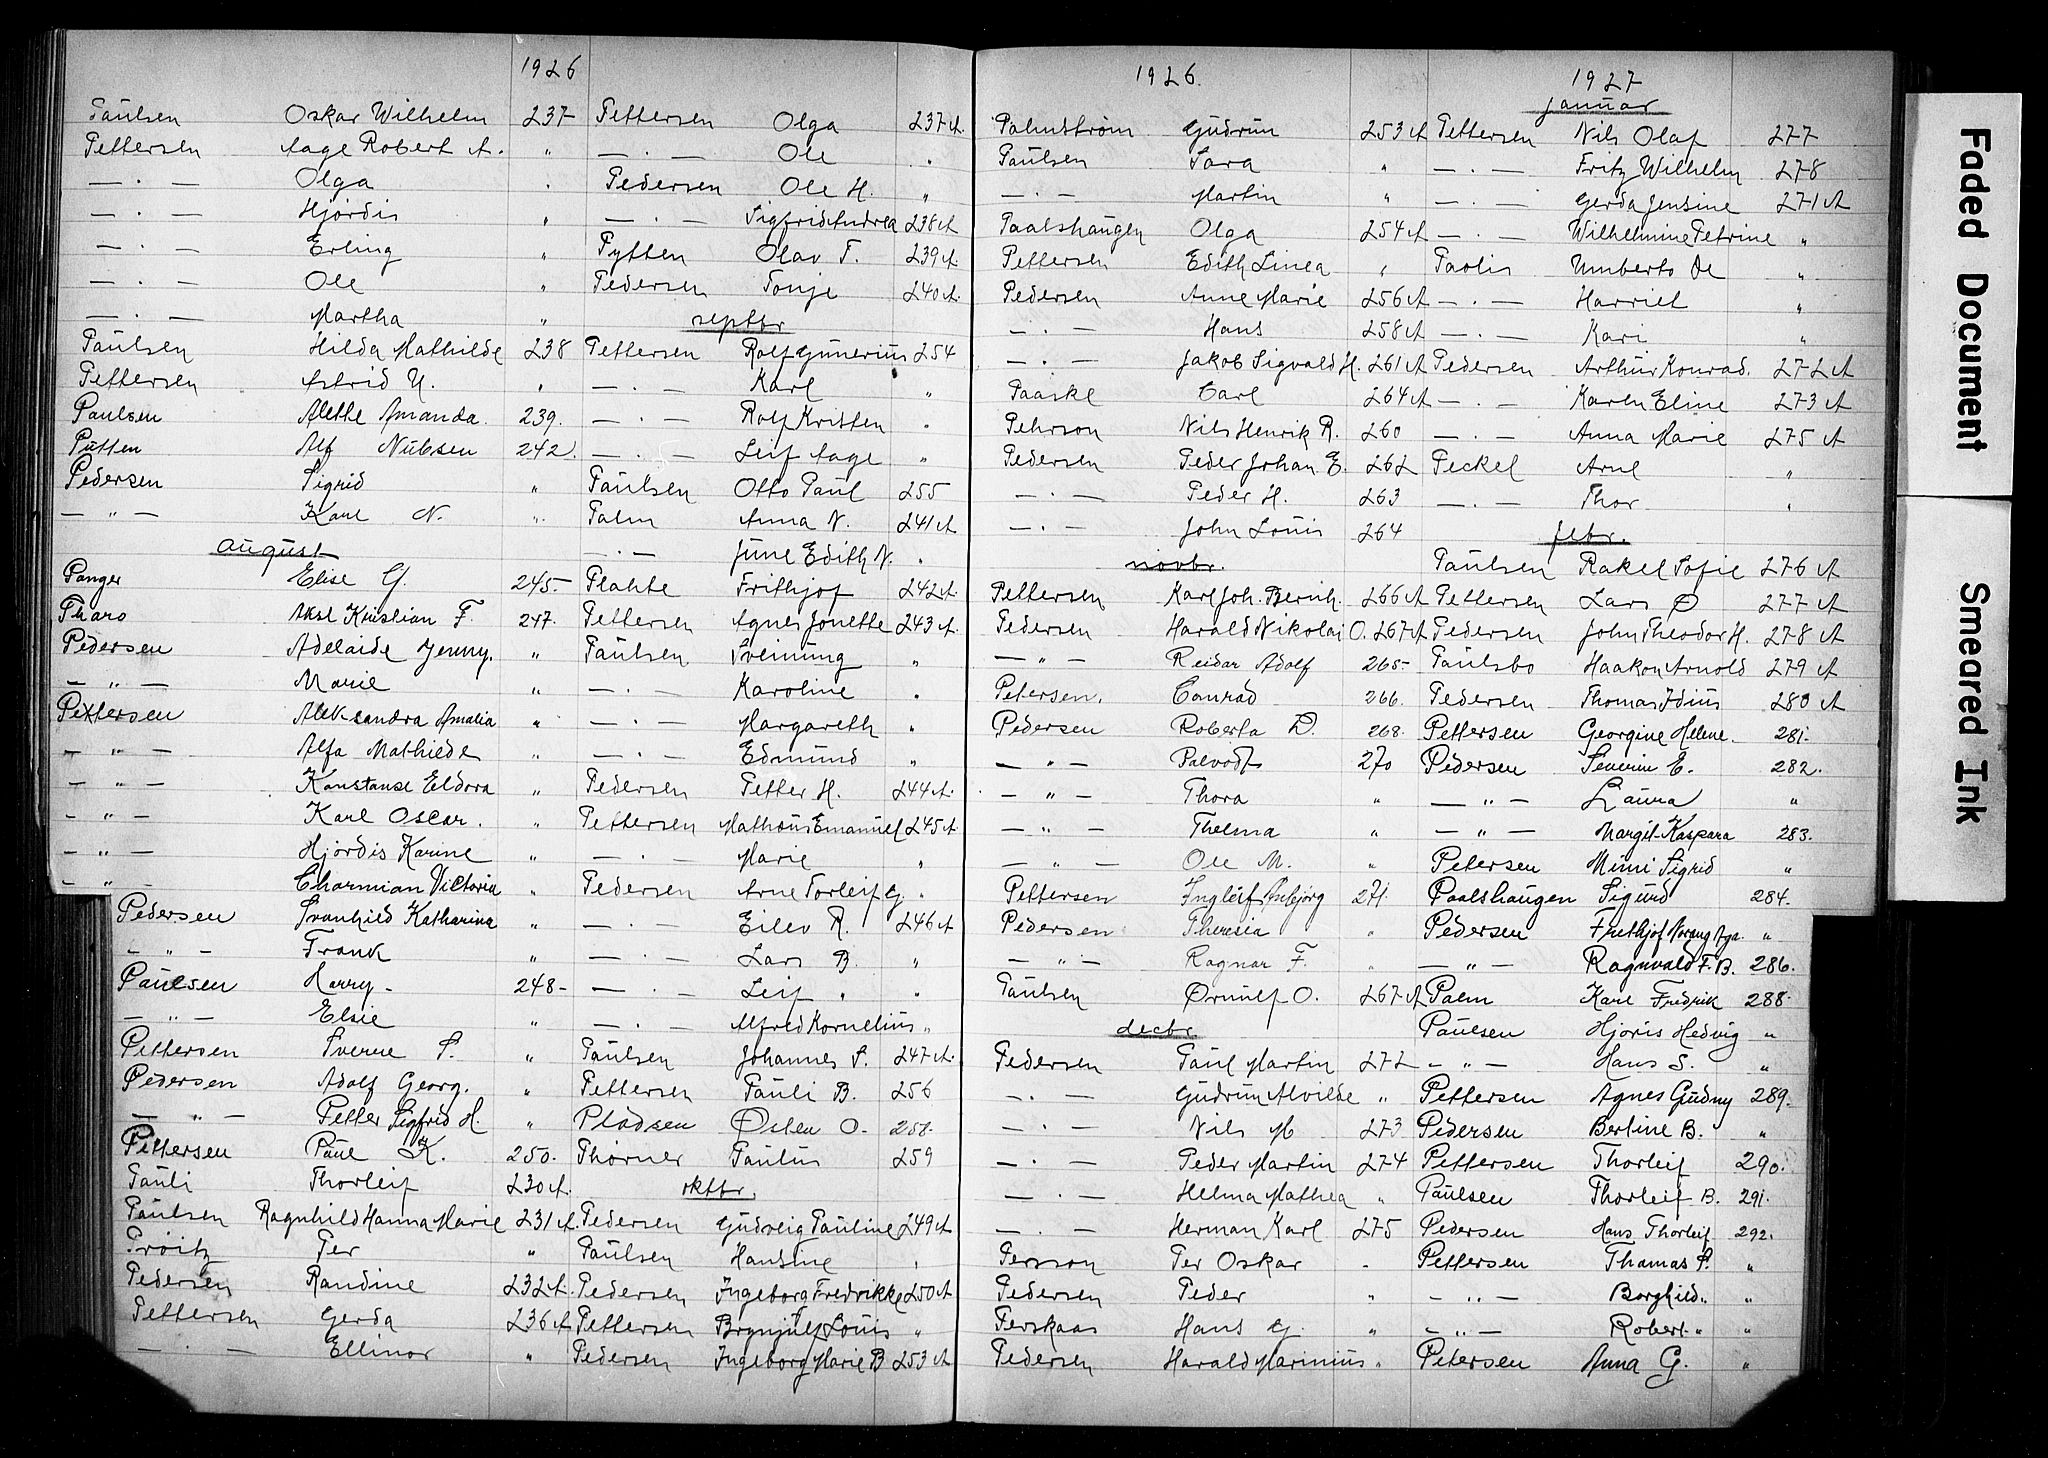 1926
Paulsen Oskar Wilhelm 237
Pettersen Aage Robert A. "
— . — Olga "
— . — Hjördis "
— . — Erling "
— . — Ole "
— . — Martha "
Paulsen Hilda Mathilde 238
Pettersen Astrid U. "
Paulsen Alethe Amanda. 239.
Pütten Alf Nubsen 242.
Pedersen Sigrid "
— " — Karl N. "
august
Panger Elise G. 245.
Pharo Aksel Kristian F. 247.
Pedersen Adelaide Jenny. "
— " — Marie "
Pettersen Aleksandra Amalia "
— " — Alfa Mathilde "
— " — Konstanse Eldora "
— " — Karl Oscar. "
— " — Hjördis Karine "
— " — Charmian Victoria "
Pedersen Svanhild Katharina "
— " — Frank "
Paulsen Harry 248
— " — Elsie "
Pettersen Sverre S. "
Pedersen Adolf Georg. "
— " — Petter Sigfrid H. "
Pettersen Paul K. 250.
Pauli Thorleif 230 A.
Paulsen Ragnhild Hanna Marie 231 A
Pröitz Per "
Pedersen Randine 232 A.
Pettersen Gerda 236 A
— . — Ellinor "
Pettersen Olga 237 A.
— . — Ole "
Pedersen Ole H. "
— . — Sigfrid Andrea 238 A
Pytten Olav T. 239 A
Pedersen Tonje 240 A.
septbr
Pettersen Rolf Gunerius 254
— . — Karl "
— . — Rolf Kristen "
— . — Leif Aage "
Paulsen Otto Paul 255
Palm Anna N. 241 A
— . — June Edith N. "
Plahte Frithjof 242 A.
Pettersen Agnes Jonette 243 A.
Paulsen Sveinung "
— . — Karoline "
— . — Margareth "
— . — Edmund "
Pedersen Petter H. 244 A.
Pettersen Mathæus Emanuel 245 A.
— . — Marie "
Pedersen Arne Torleif G. "
— . — Eilev R. 246 A
— . — Lars B. "
— . — Leif " "
— . — Alfred Kornelius "
Paulsen Johannes S. 247 A.
Pettersen Pauli B. 256
Pladsen Østen O. 258
Thorner Paulus 259
oktbr.
Pedersen Gudveig Pauline 249 A
Paulsen Hansine "
Pedersen Ingeborg Fredrikke 250 A
Pettersen Brynjulf Louis "
Pedersen Ingeborg Marie B 253 A
1926.
Palmstrøm Gudrun 253 A
Paulsen Sara "
— . — Martin "
Paalshaugen Olga 254 A
Pettersen Edith Linea "
Pedersen Anne Marie 256 A
— . — Hans 258 A
— . — Jakob Sigvald H. 261 A
Paaske Carl 264 A
Pehrson Nils Henrik R. 260
Pedersen Peder Johan E. 262
— . — Peder H. 263
— . — John Louis 264
novbr.
Pettersen Karl Joh. Bernh. 266 A
Pedersen Harald Nikolai O. 267 A
— " — Reidar Adolf 265
Petersen. Conrad 266.
Pedersen Roberta D. 268.
— " — 270
— " — Thora "
— " — Thelma "
— " — Ole M. "
Pettersen Ingleif Asbjörg 271.
Pedersen Theresia "
— " — Ragnar F. "
Paulsen Ørnulf O. 267 A
decbr.
Pedersen Paul Martin 272
— . — Gudrun Alvilde "
— . — Nils M 273
— . — Peder Martin 274
— . — Helma Mathea "
— . — Herman Karl 275
Persson Per Oskar "
Pedersen Peder "
Perskaas Hans G. "
Pedersen Harald Marinius "
1927
januar
Pettersen Nils Olaf 277
— . — Fritz Wilhelm 278
— . — Gerda Jensine 271 A
— . — Wilhelmine Petrine "
Paolis Umberto De "
— . — Harriet "
— . — Kari "
Pedersen Arthur Konrad. 272 A
— . — Karen Eline 273 A
— . — Anna Marie 275 A
Peckel Arne "
— . — Thor "
febr.
Paulsen Rakel Sofie 276 A
Pettersen Lars Ø 277 A
Pedersen John Theodor H. 278 A
Paulsbo Haakon Arnold 279 A
Pedersen Thomas Idius 280 A
Pettersen Georgine Helene 281.
Pedersen Severin E. 282.
— " — Laura "
— " — Margit Kaspara 283.
Petersen Mimi Sigrid "
Paalshaugen Sigurd 284.
Pedersen Frithjof "
— " — Ragnvald F. B. 286.
Palm Karl Fredrik 288
Paulsen Hjoris Hedvig "
— " — Hans S. "
Pettersen Agnes Gudny 289.
Pedersen Bertine B. "
Pettersen Thorleif 290.
Paulsen Thorleif B. 291.
Pedersen Hans Thorleif 292.
Pettersen Thomas P. "
— " — Borghild " "
— " — Robert " "
Petersen Anna G. "
Faded Document
Smeared Ink